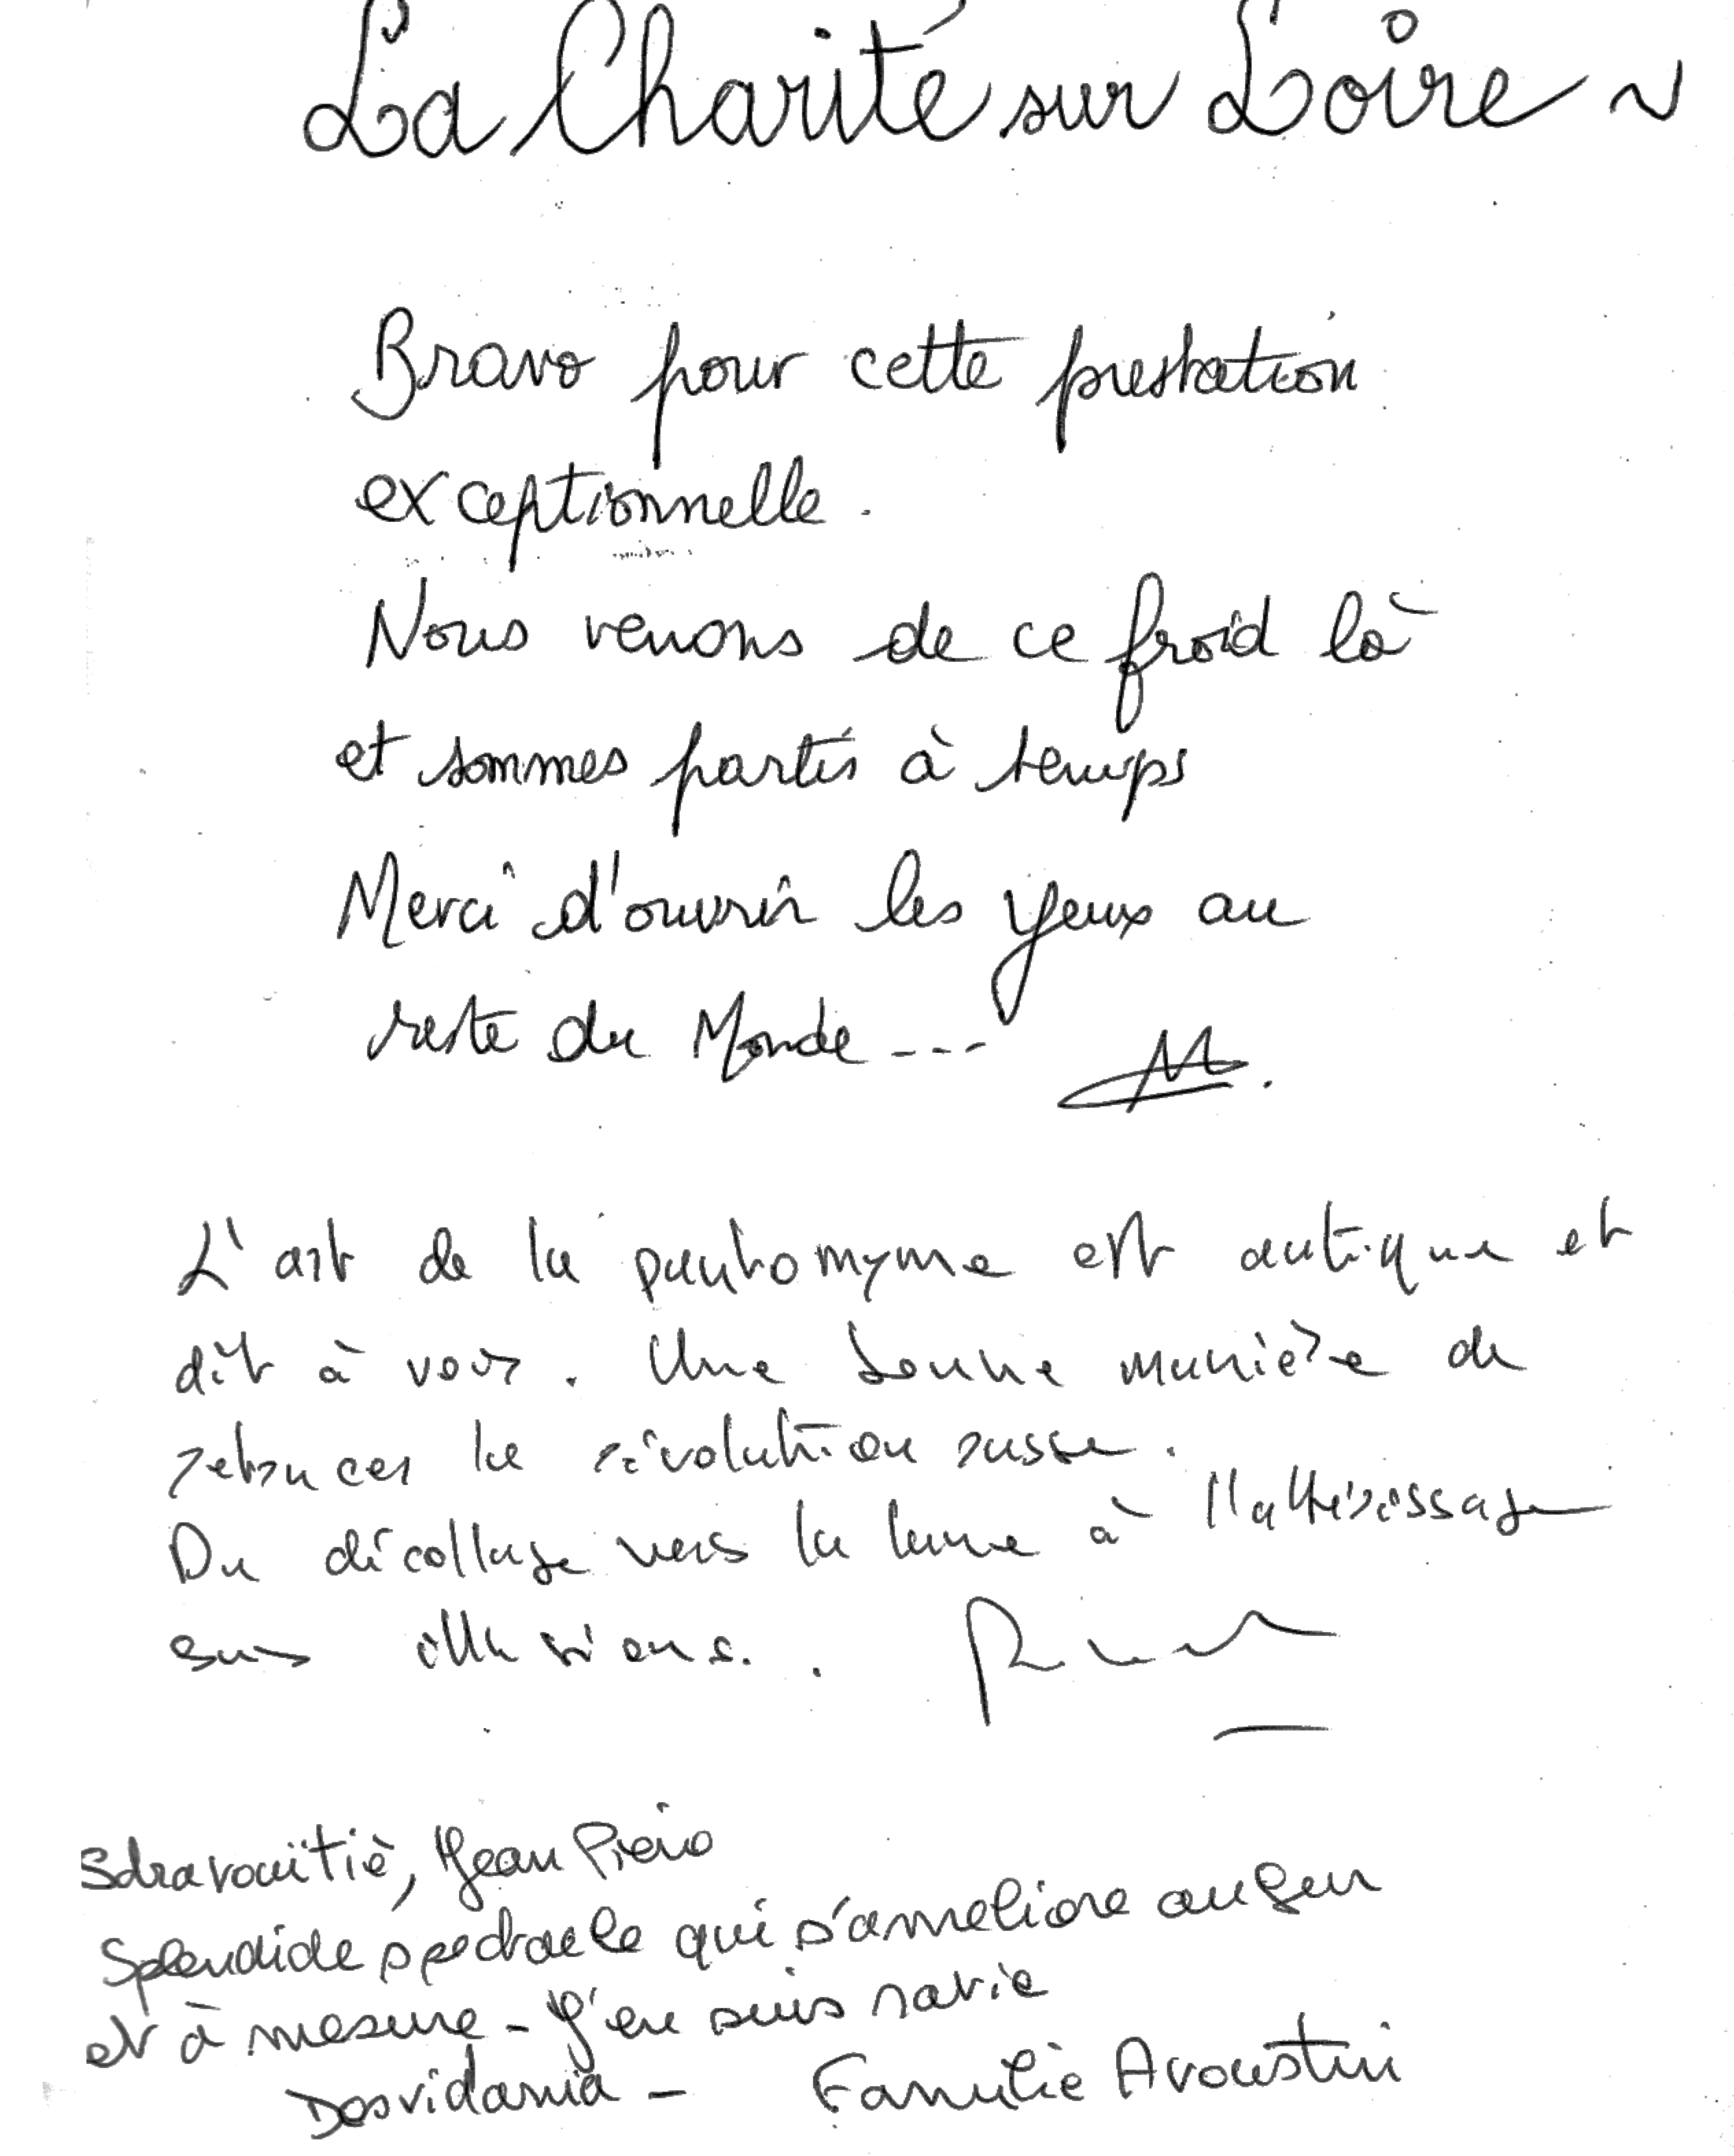 La Charité sur Loire ~
Bravo pour cette prestation
exceptionnelle.
Nous venons de ce froid là
et sommes partis à temps
Merci d'ouvrir les yeux au
reste du Monde ---
M.
L'art de la pantomyme est antique et
dit à voir. Une bonne manière de
retracer la révolution russe.
Du décollage vers la lune à l'attérissage
sans illusions.
Sdravouïtiè, Jean Piero
Splendide spectacle qui s'améliore au fur
et à mesure - J'en suis ravie
Dosvidania - Famille Avoustin